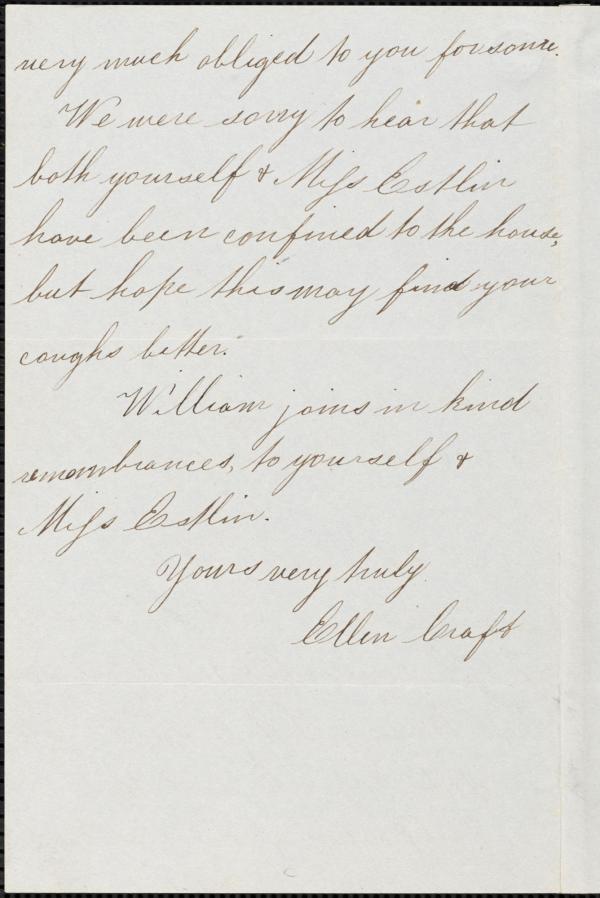 very much obliged to you for some.
We were sorry to hear that
both yourself & Miss Estlin
have been confined to the house,
but hope this may find your
coughs better.
William joins in kind
remembrances, to yourself &
Miss Estlin.
Yours very truly
Ellen Craft